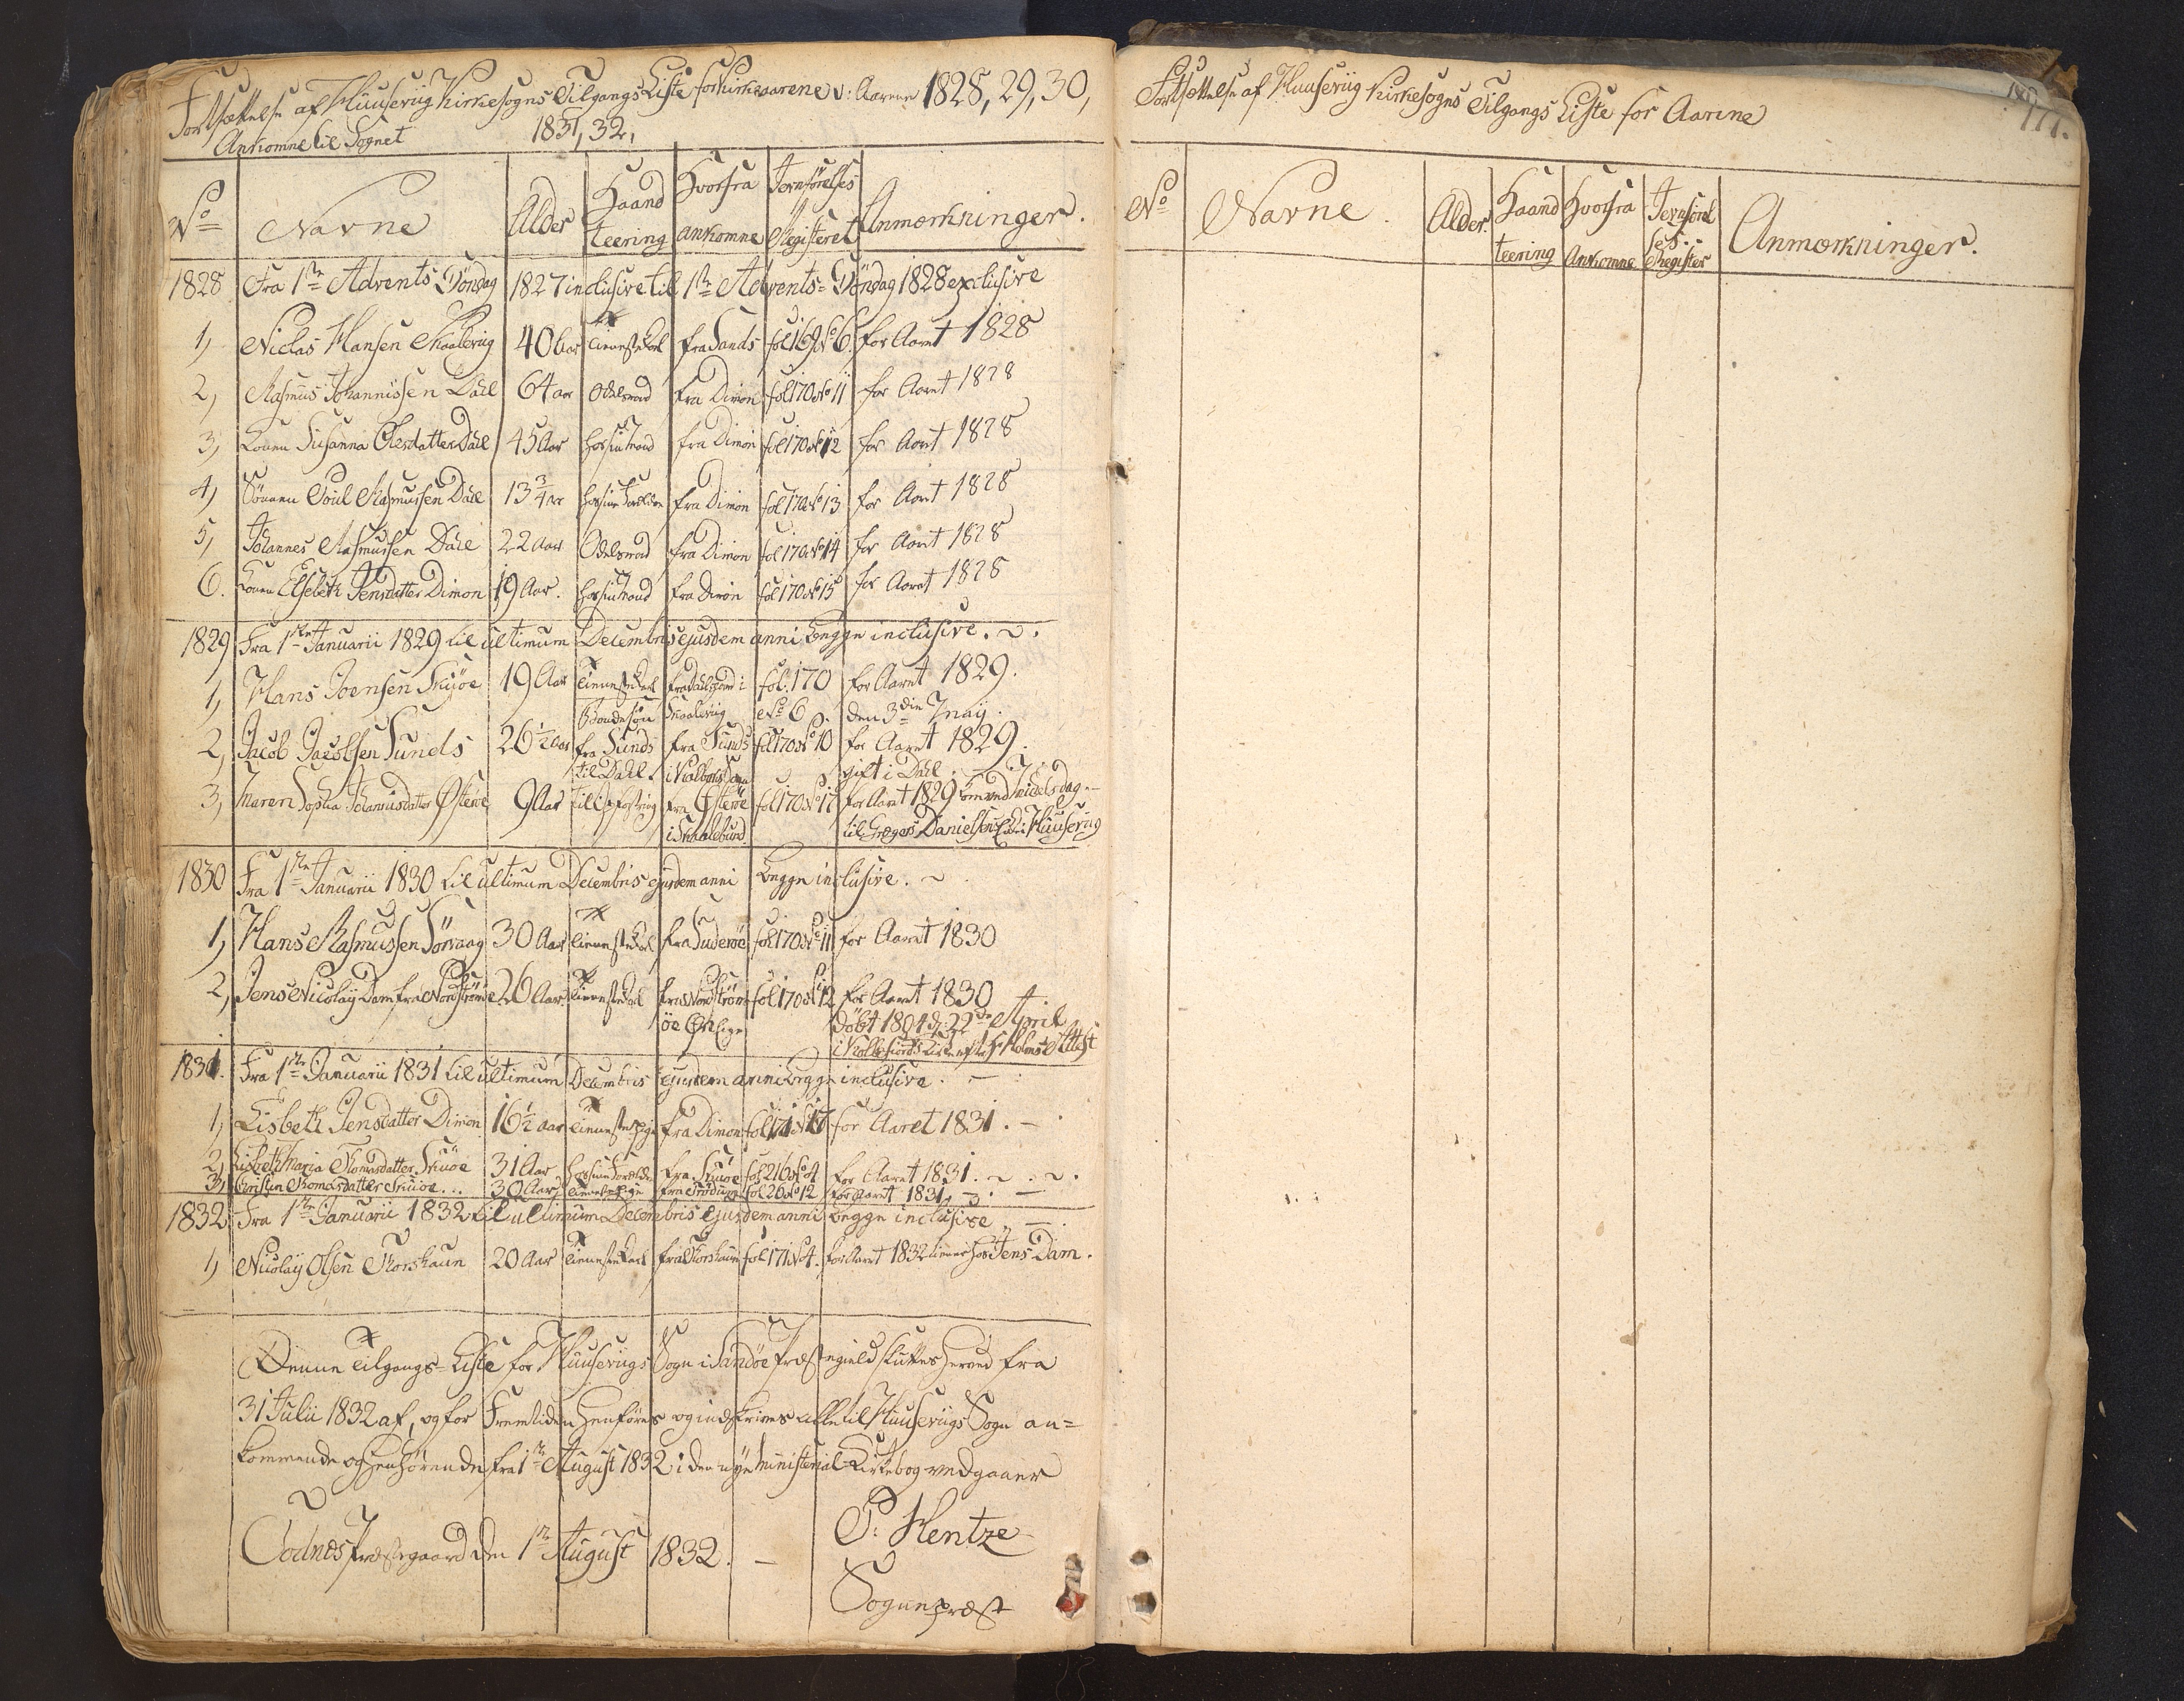 Fortsættelse af Huuseviig Kirkesogns Tilgangs Liste for Kirkeaarene v: Aarene 1828, 29, 30,
Ankomne til Sognet 1831, 32,
No Navne Alder Haandteering Hvorfra ankomne Jevnførelses Registeret Anmærkninger.
1828 Fra 1ste Advents Søndag 1827 inclusive til 1ste Advents-Søndag 1828 exclusive
1, Niclas Hansen Skaalevig 40 Aar Tienestekarl fra Sands fol 169 No 6. for Aaret 1828
2, Rasmus Johannissen Dahl 64 aar Odelsmand fra Dimon fol 170 No 11 for Aaret 1828
3, Konen Susanna Olesdatter Dahl 45 Aar hos sin Mand fra Dimon fol 170 No 12 for Aaret 1828
4, Sönnen Poul Rasmussen Dahl 13 3/4 ar hos sine Forældre fra Dimon fol 170 No 13 for Aaret 1828
5, Johannes Rasmussen Dahl 22 Aar Odelsmand fra Dimon fol 170 No 14 for Aaret 1828
6. Konen Elsebeth Jensdatter Dimon 19 Aar. hos sin Mand fra Dimon fol 170 No 15 for Aaret 1828
1829 Fra 1ste Januarii 1829 til ultimum Decembris ejusdem anni begge inclusive.
1, Hans Joensen Skuöe 19 Aar Tienestekarl fra i fol. 170 for Aaret 1829.
Bondesøn Skaalevig No 6. den 3die Maij.
2, Jacob Jacobsen Sunds 26 1/2 Aar fra Sunds fra Sunds fol 170 No 10 for Aaret 1829.
til Dahl. i gift i Dahl.
3, Maren Sophia Johannisdatter Østeröe 9 Aar til Opfostring fra Østeröe fol 170 No 17 for Aaret 1829
i til Gregers Danielsen Huuseviig
1830 Fra 1ste Januarii 1830 til ultimum Decembris ejusdem anni begge inclusive.
1, Hans Rasmussen Sörvaag 30 Aar Tienestekarl fra Suderöe fol. 170 No 11 for Aaret 1830
2, Jens Nicolaij Dam fra Nordströmöe 26 Aar. Tienestekarl fra Nordströmöe fol 170 No 12 for Aaret 1830
döbt 1804 d: 22de April
i Kollefiords Kirke efter Attest
1831. Fra 1ste Januarii 1831 til ultimum Decembris ejusdem anni begge inclusive.
1, Lisbeth Jensdatter Dimon 16 1/2 aar Tienestepige fra Dimon fol 171 No 17 for Aaret 1831.
2, Lisbeth Maria Thomasdatter Skuöe 31 Aar hos sine Forældre fra Skuöe fol 216 No 4 for Aaret 1831.
3, Christin Thomasdatter Skuöe.. 30 Aar Tienestepige fra fol 26 No 12 for Aaret 1831
1832 Fra 1ste Januarii 1832 til ultimum Decembris ejusdem anni begge inclusive.
1, Nicolaij Olsen Thorshaun 20 Aar Tienestekarl fra Thorshaun fol 171 No 4. for Aaret 1832 tiener hos Jens Dam.
Denne Tilgangs-Liste for Huusevügs Sogn i Sandöe Præstegield sluttes herved fra
31 Julii 1832 af, og for Fremtiden henføres og indskrives alle til Huusevügs Sogn an=
kommende og henhørende fra 1ste August 1832 i den nye Ministerial-Kirkebog vedgaaer
Todnæs Præstegaard den 1ste August 1832. —
P: Hentze
Sognepræst
Fortsættelse af Huusevig Kirkesogns Tilgangs Liste for Aarene
177.
No Navne. Alder. Haandteering Hvorfra Ankomne Jevnførelses Register Anmærkninger.